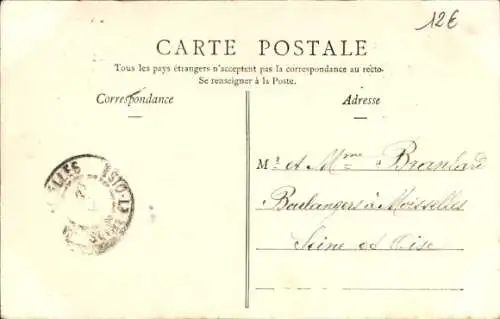 12€
CARTE POSTALE
Tous les pays étrangers n'acceptent pas la correspondance au recto.
Se renseigner à la Poste.
Correspondance
Adresse
Mr et Mme Branlard
Boulangers à Moisselles
Seine et Oise